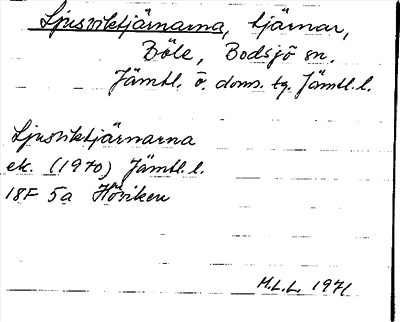 Ljusviktjärnarna, tjärnar,
Böle, Bodsjö sn.
Jämtl. ö. doms. tg. Jämtl. l.
Ljusviktjärnarna
ek. (1970) Jämtl. l.
18F 5a Höviken
M.L.L. 1971